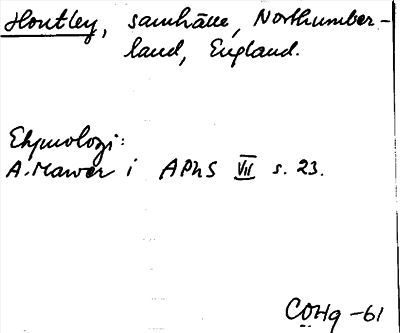 Hontley, samhälle, Northumber-
land, England.
Etymologi:
A. Mawer i APhS VII s. 23.
COHg -61